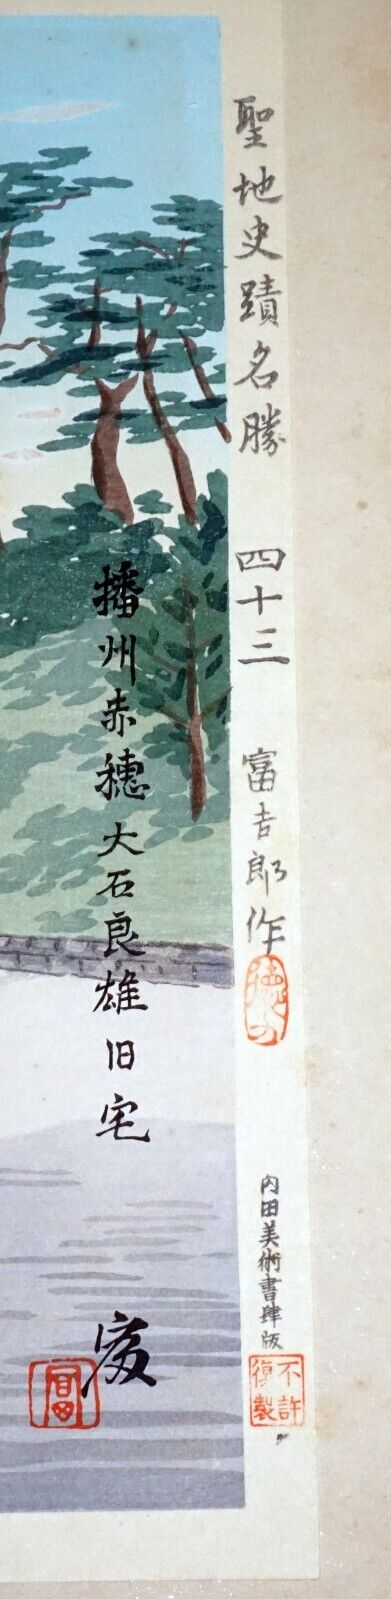 聖地史蹟名勝 四十三 富吉郎作
徳力
内田美術書肆版
不許
復製
播州赤穂大石良雄旧宅
富